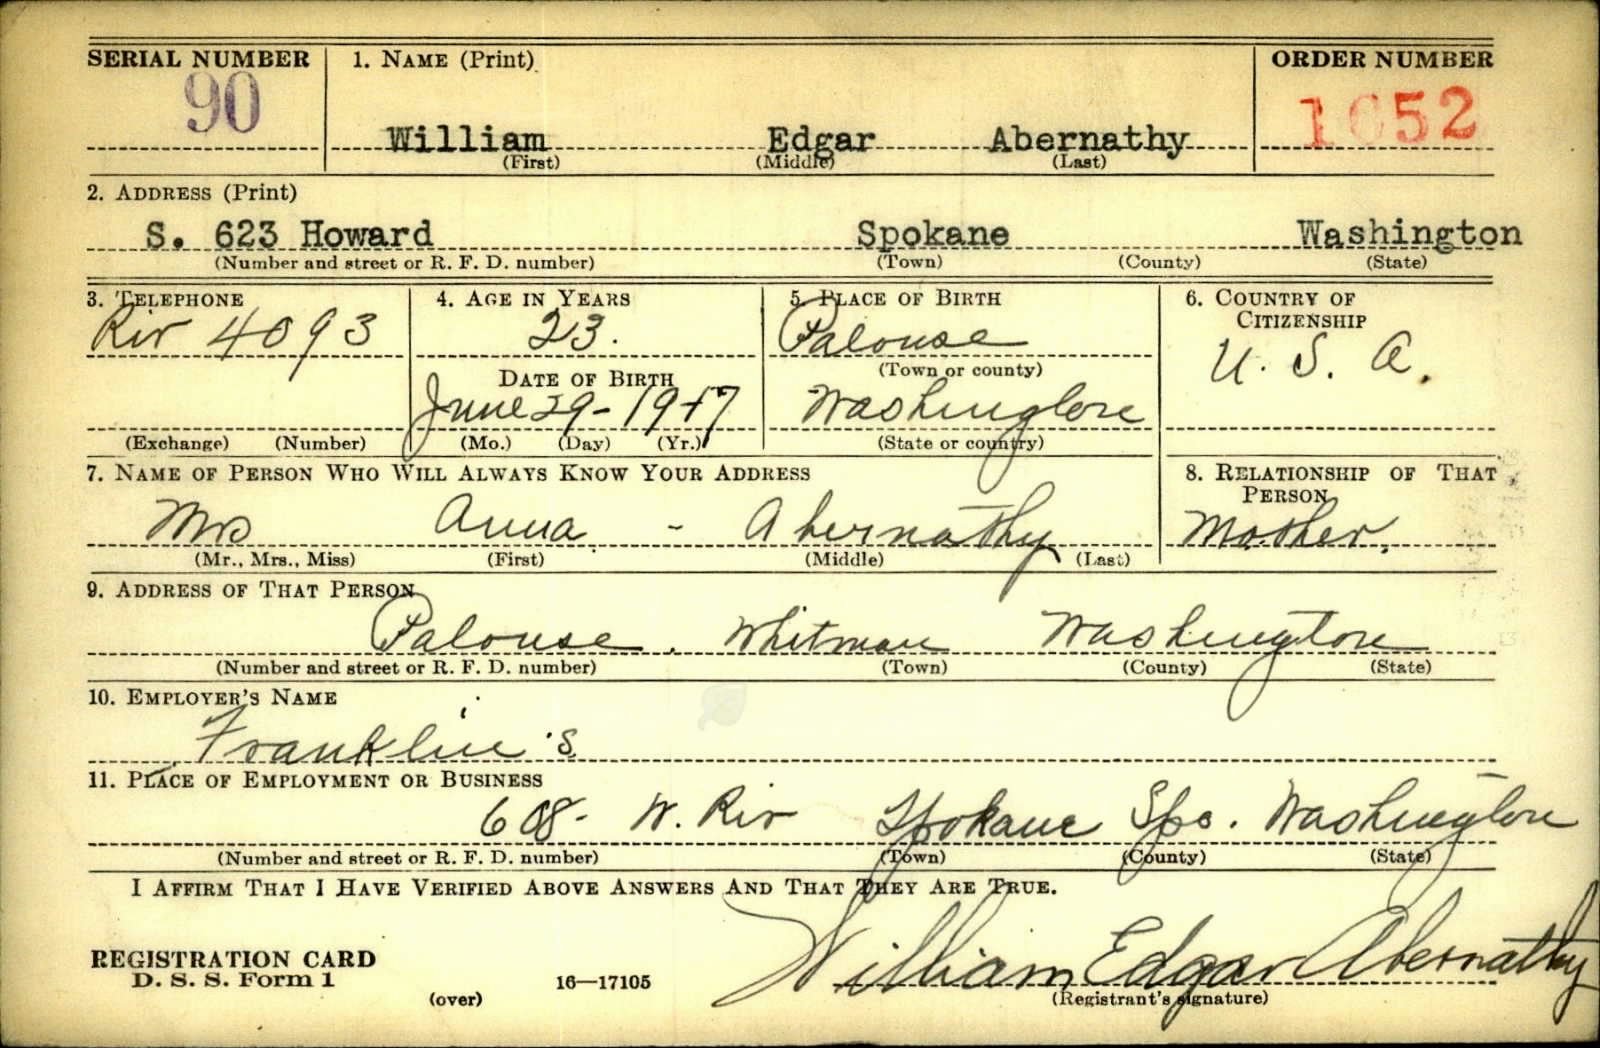 SERIAL NUMBER 1. NAME (Print) ORDER NUMBER
90 1652
William Edgar Abernathy
(First) (Middle) (Last)
2. ADDRESS (Print)
S. 623 Howard Spokane Washington
(Number and street or R. F. D. number) (Town) (County) (State)
3. TELEPHONE 4. AGE IN YEARS 5. PLACE OF BIRTH 6. COUNTRY OF CITIZENSHIP
Riv 4093 23. Palouse U. S. A.
DATE OF BIRTH (Town or county)
June 29 - 1917 Washington
(Exchange) (Number) (Mo.) (Day) (Yr.) (State or country)
7. NAME OF PERSON WHO WILL ALWAYS KNOW YOUR ADDRESS 8. RELATIONSHIP OF THAT PERSON
Mrs Anna - Abernathy Mother.
(Mr., Mrs., Miss) (First) (Middle) (Last)
9. ADDRESS OF THAT PERSON
Palouse. Whitman Washington
(Number and street or R. F. D. number) (Town) (County) (State)
10. EMPLOYER'S NAME
Franklin's
11. PLACE OF EMPLOYMENT OR BUSINESS
608 - W. Riv Spokane Spo. Washington
(Number and street or R. F. D. number) (Town) (County) (State)
I AFFIRM THAT I HAVE VERIFIED ABOVE ANSWERS AND THAT THEY ARE TRUE.
William Edgar Abernathy
REGISTRATION CARD
D. S. S. Form 1 (over) 16—17105 (Registrant's signature)